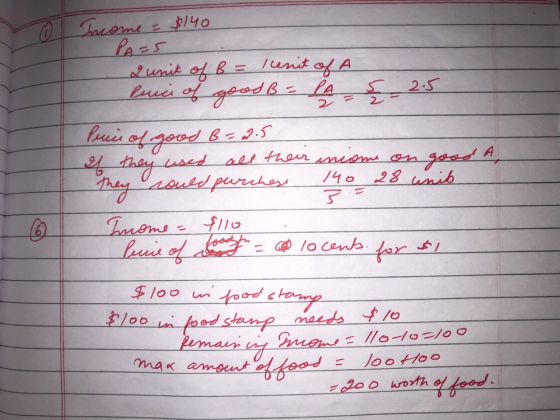 ① Income = $140
PA = 5
2 unit of B = 1 unit of A
Price of good B = PA/2 = 5/2 = 2.5
Price of good B = 2.5
If they used all their income on good A,
they could purchase 140/5 = 28 units
⑥ Income = $110
Price of food = 10 cents for $1
$100 in food stamp
$100 in food stamp needs $10
Remaining Income = 110-10=100
max amount of food = 100+100
= 200 worth of food.